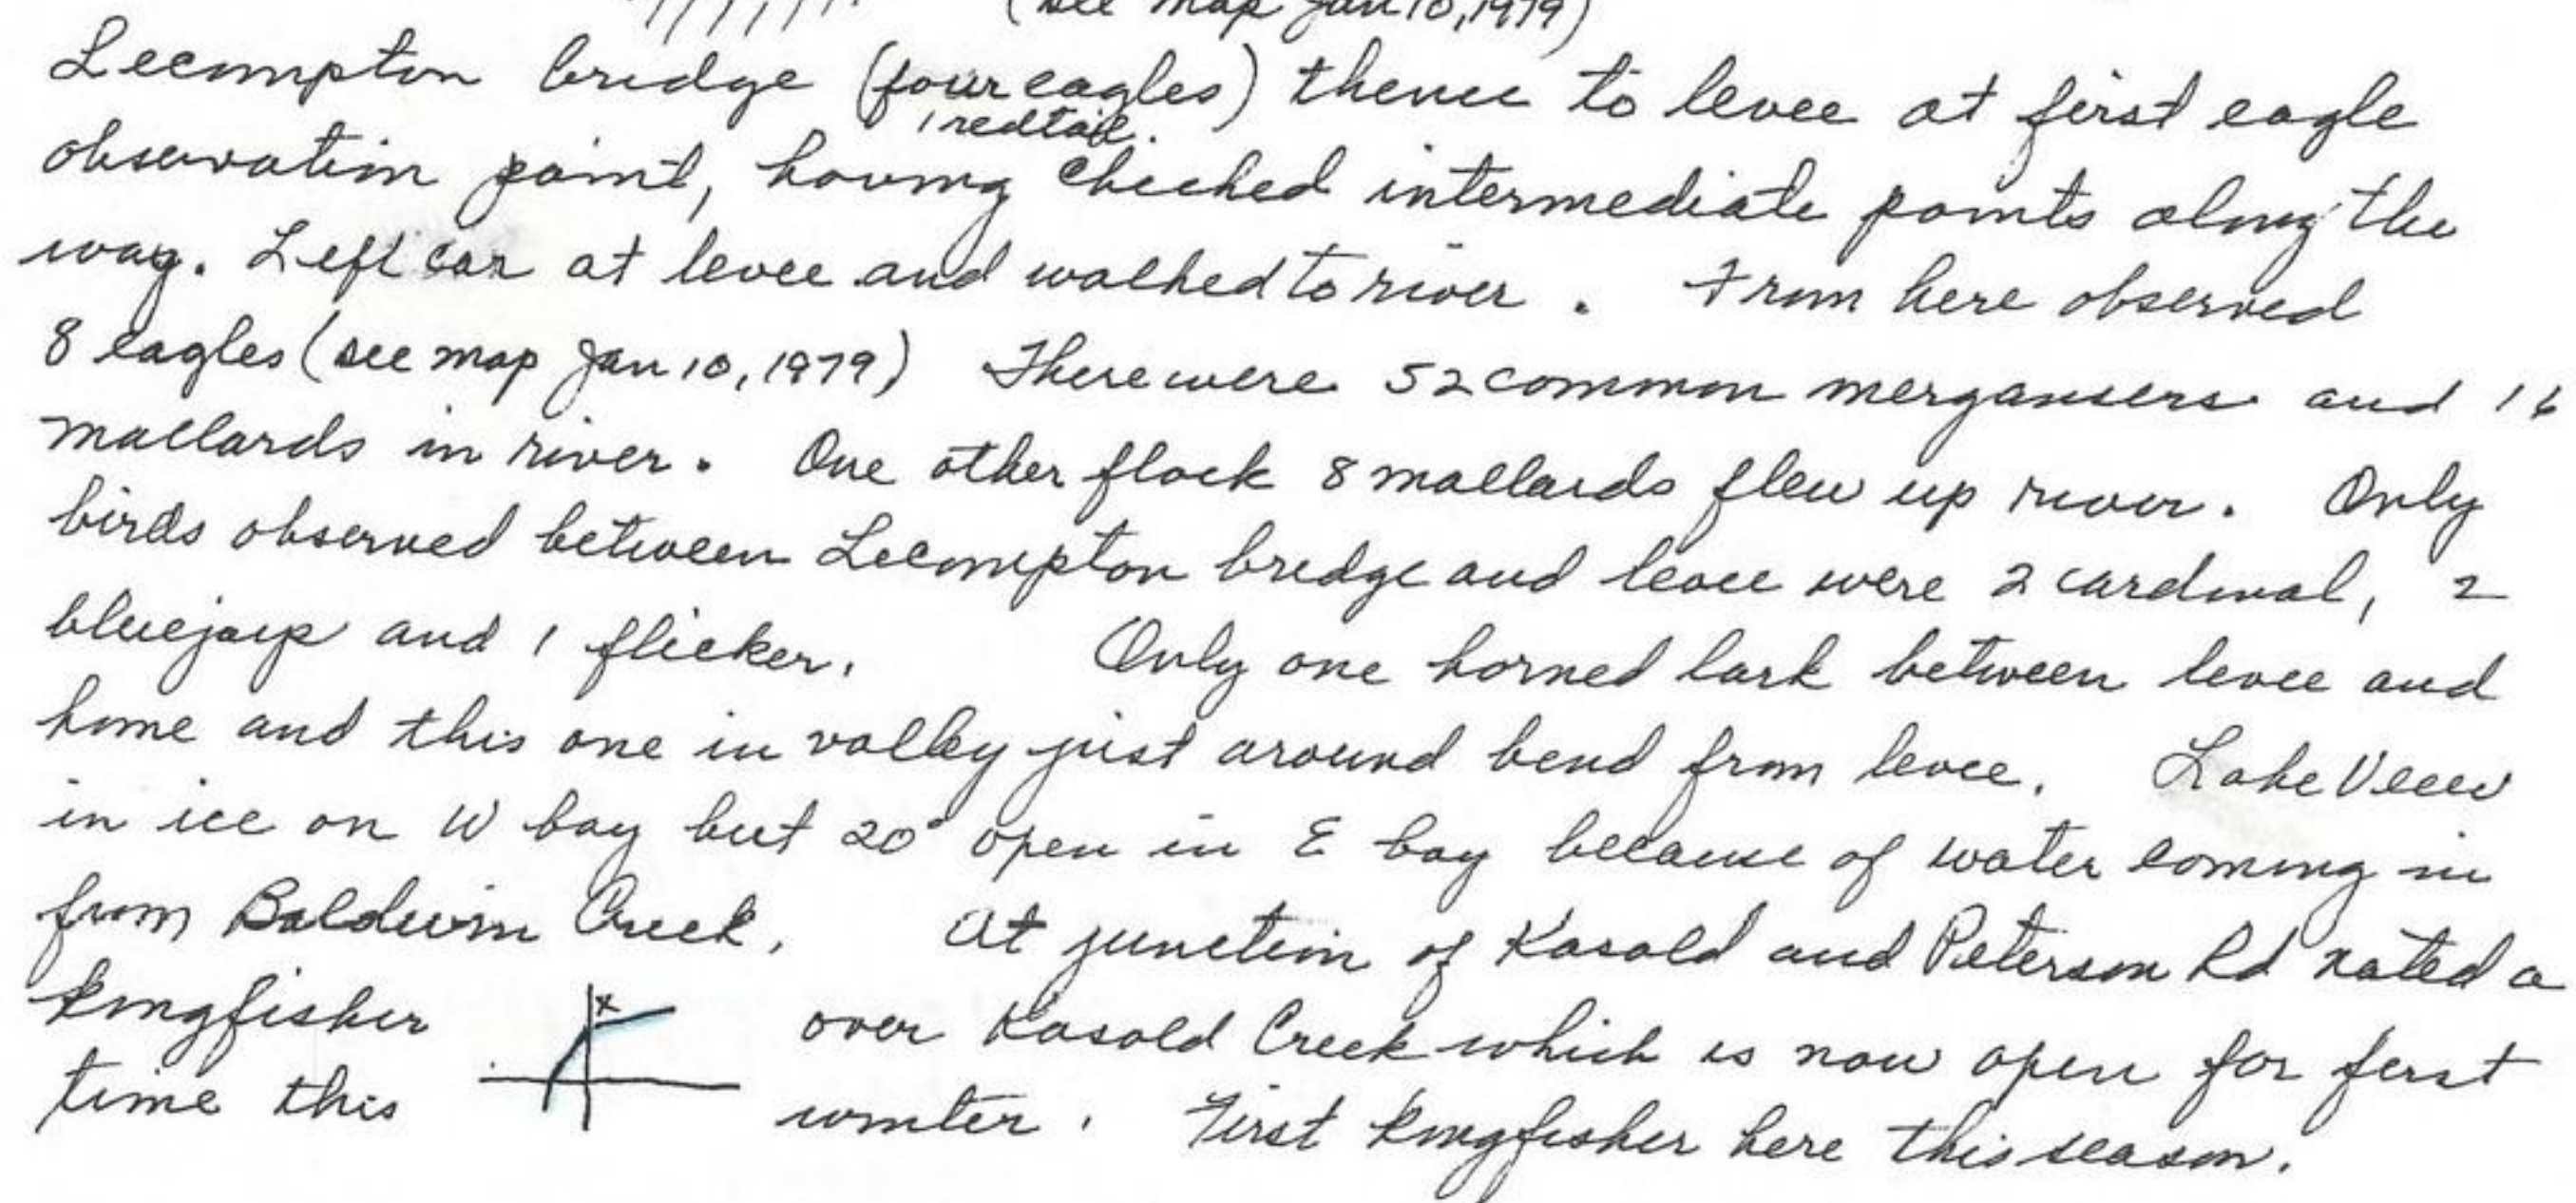 (see map Jan 10, 1979)
Lecompton bridge (four eagles) thence to levee at first eagle
1 redtail.
observation point, having checked intermediate points along the
way. Left car at levee and walked to river. From here observed
8 eagles (see map Jan 10, 1979) There were 52 common mergansers and 16
mallards in river. One other flock 8 mallards flew up river. Only
birds observed between Lecompton bridge and levee were 2 cardinal, 2
bluejays and 1 flicker. Only one horned lark between levee and
home and this one in valley just around bend from levee. Lake View
in ice on W bay but 20° open in E bay because of water coming in
from Baldwin Creek. At junction of Kasold and Peterson Rd noted a
kingfisher x over Kasold Creek which is now open for first
time this winter. First kingfisher here this season.